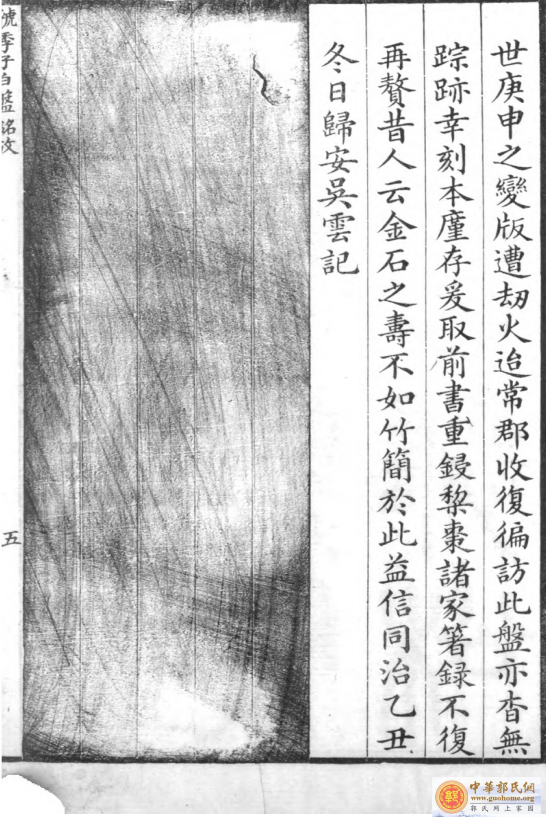 世庚申之變版遭刼火迨常郡收復徧訪此盤亦杳無
踪跡幸刻本廑存爰取前書重鋟棃棗諸家箸録不復
再贅昔人云金石之壽不如竹簡於此益信同治乙丑
冬日歸安吳雲記
虢季子白盤銘攷
五
中華郭氏網
www.guohome.org
郭氏网上家园